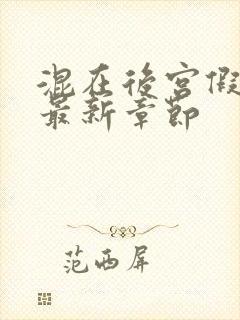 混在後宮假
最新章節
范西屏